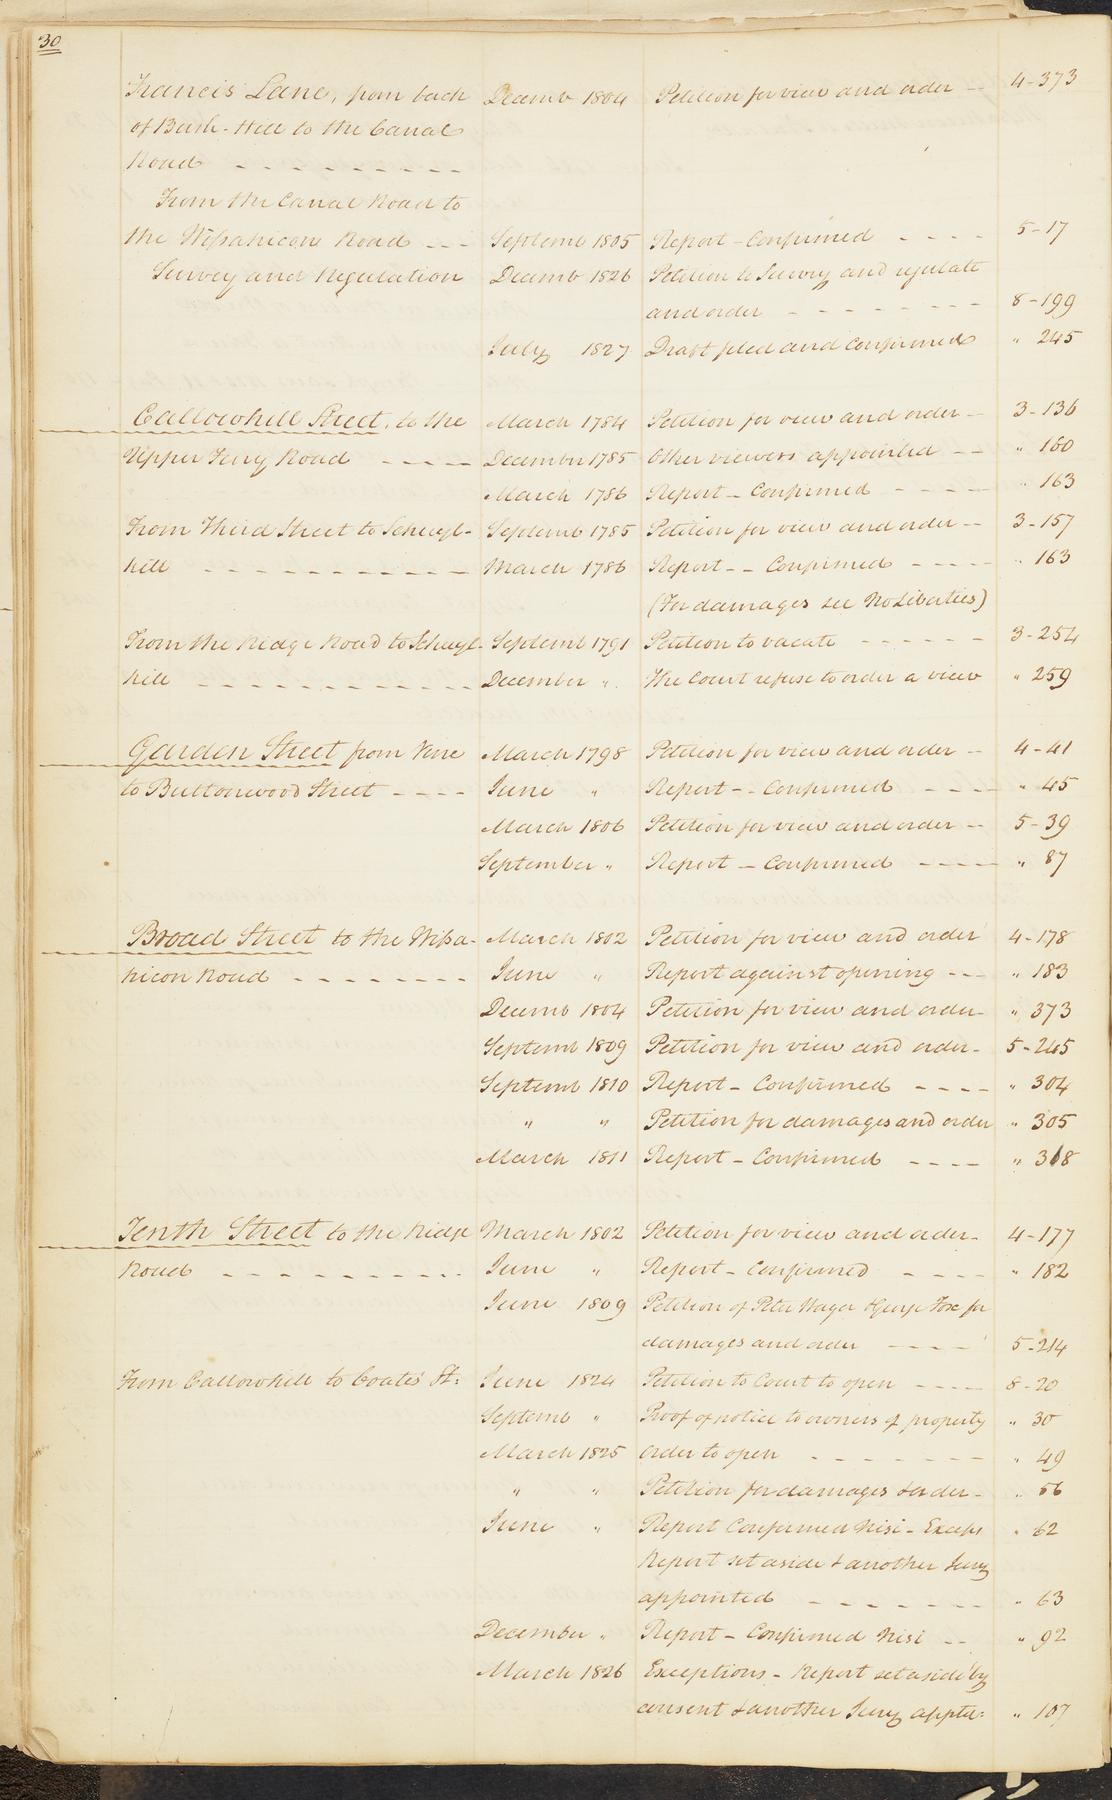 30
Francis' Lane, from back Decemb 1804 Petition for view and order -- 4-373
of Bush-Hill to the Canal
Road - - - - - - - - -
From the Canal Road to
the Wissahicon Road --- Septemb 1805 Report - Confirmed - - - - 5-17
Survey and Regulation Decemb 1826 Petition to Survey and regulate
and order - - - - - - - - 8-199
July 1827 Draft filed and confirmed " 245
Callowhill Street, to the March 1784 Petition for view and order -- 3-136
Upper Ferry Road ---- December 1785 Other viewers appointed -- " 160
March 1786 Report - Confirmed - - - - " 163
From Third Street to Schuyl- Septemb 1785 Petition for view and order -- 3-157
kill - - - - - - - - - - - March 1786 Report -- Confirmed ---- " 163
(For damages see No Liberties)
From the Ridge Road to Schuyl- Septemb 1791 Petition to vacate - - - - - - 3-254
kill - - - - - - - - - - - December " The Court refuse to order a view " 259
Garden Street from Vine March 1798 Petition for view and order -- 4-41
to Buttonwood Street ---- June " Report -- Confirmed ---- " 45
March 1806 Petition for view and order -- 5-39
September " Report - Confirmed ---- " 87
Broad Street to the Wissa- March 1802 Petition for view and order 4-178
hicon Road - - - - - - - - June " Report against opening --- " 183
Decemb 1804 Petition for view and order- " 373
Septemb 1809 Petition for view and order- 5-245
Septemb 1810 Report - Confirmed ---- " 304
" " Petition for damages and order " 305
March 1811 Report - Confirmed ---- " 318
Tenth Street to the Ridge March 1802 Petition for view and order- 4-177
Road - - - - - - - - - June " Report - Confirmed ---- " 182
June 1809 Petition of Peter Wager & George Fox for
damages and order ---- 5-214
From Callowhill to Coates' St: June 1824 Petition to Court to open ---- 8-20
Septemb " Proof of notice to owners of property " 30
March 1825 Order to open - - - - - - - " 49
" " Petition for damages & order- " 56
June " Report Confirmed Nisi - Excepts " 62
Report set aside & another Jury
appointed - - - - - - - " 63
December " Report - Confirmed Nisi -- " 92
March 1826 Exceptions - Report set aside by
consent & another Jury apptd: " 107